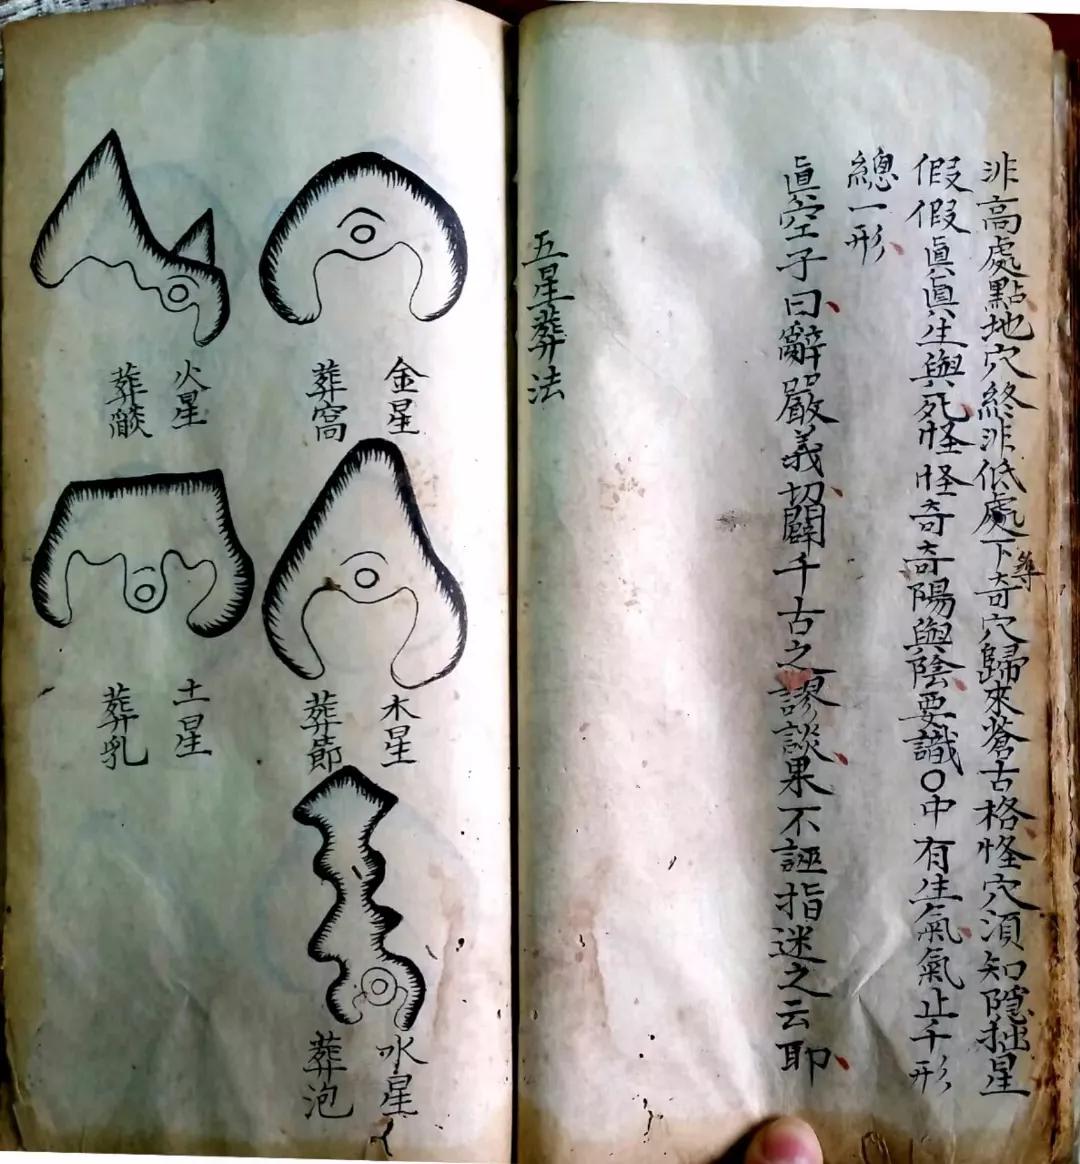 非高處點地穴終非低處下尋奇穴歸來蒼古格怪穴須知隱拙星
假假眞眞生與死怪怪奇奇陽與陰要識〇中有生氣氣止千形
總一形
眞空子曰辭嚴義切闢千古之謬談果不誣指迷之云耶
五星葬法
金星
葬窩
火星
葬燄
木星
葬節
土星
葬乳
水星
葬泡